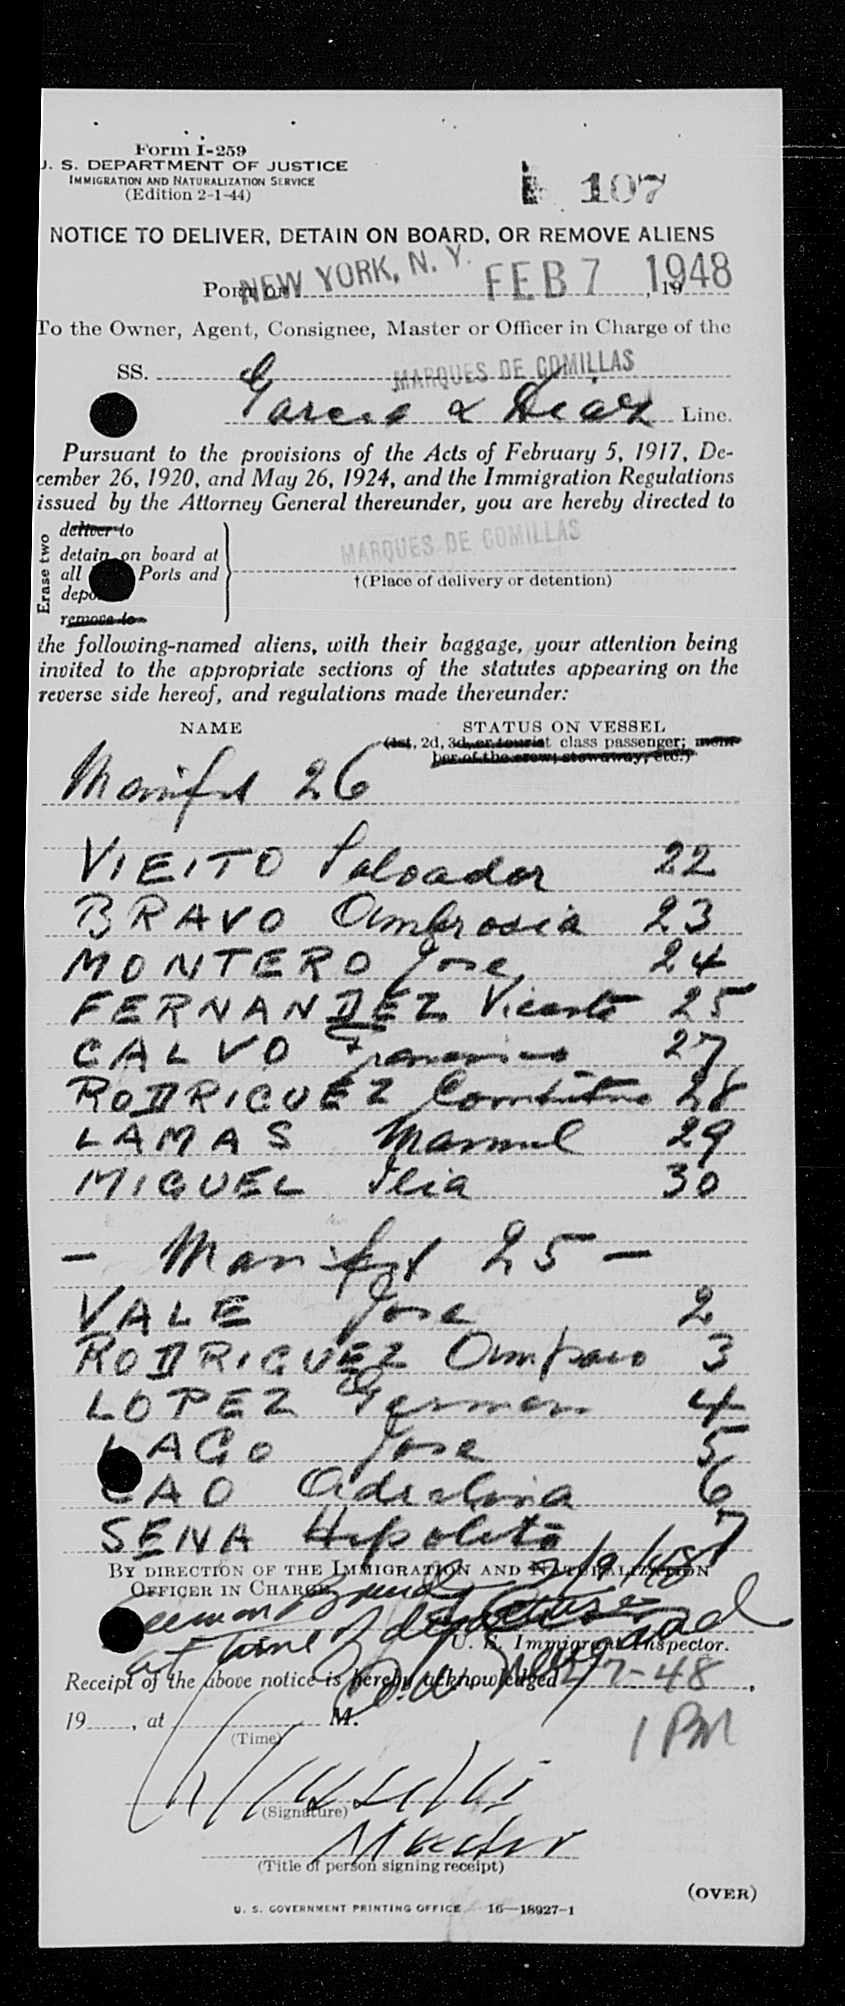 Form I-259
U. S. DEPARTMENT OF JUSTICE
IMMIGRATION AND NATURALIZATION SERVICE
(Edition 2-1-44)
107
NOTICE TO DELIVER, DETAIN ON BOARD, OR REMOVE ALIENS
Port of NEW YORK, N. Y. FEB 7 1948, 19
To the Owner, Agent, Consignee, Master or Officer in Charge of the
SS. MARQUES DE COMILLAS
Garcia & Diaz Line.
Pursuant to the provisions of the Acts of February 5, 1917, De-
cember 26, 1920, and May 26, 1924, and the Immigration Regulations
issued by the Attorney General thereunder, you are hereby directed to
Erase two
deliver to
detain on board at MARQUES DE COMILLAS
all Ports and
†(Place of delivery or detention)
remove to
the following-named aliens, with their baggage, your attention being
invited to the appropriate sections of the statutes appearing on the
reverse side hereof, and regulations made thereunder:
NAME STATUS ON VESSEL
(1st, 2d, 3d, or tourist class passenger; mem-
ber of the crew; stowaway, etc.)
Manifest 26
VIEITO Salvador 22
BRAVO Ambrosia 23
MONTERO Jose 24
FERNANDEZ Vicente 25
CALVO Francisco 27
RODRIGUEZ 28
LAMAS Manuel 29
MIGUEL Ilia 30
- Manifest 25 -
VALE Jose 2
RODRIGUEZ Amparo 3
LOPEZ German 4
LAGO Jose 5
CAO Adelina 6
SENA Hipolito 7
BY DIRECTION OF THE IMMIGRATION AND NATURALIZATION
OFFICER IN CHARGE 2/9/48
at time of departure
U. S. Immigrant Inspector.
Receipt of the above notice is hereby acknowledged 2-7-48,
19, at M. 1 PM
(Time)
(Signature)
Master
(Title of person signing receipt)
(OVER)
U. S. GOVERNMENT PRINTING OFFICE 16—18927-1